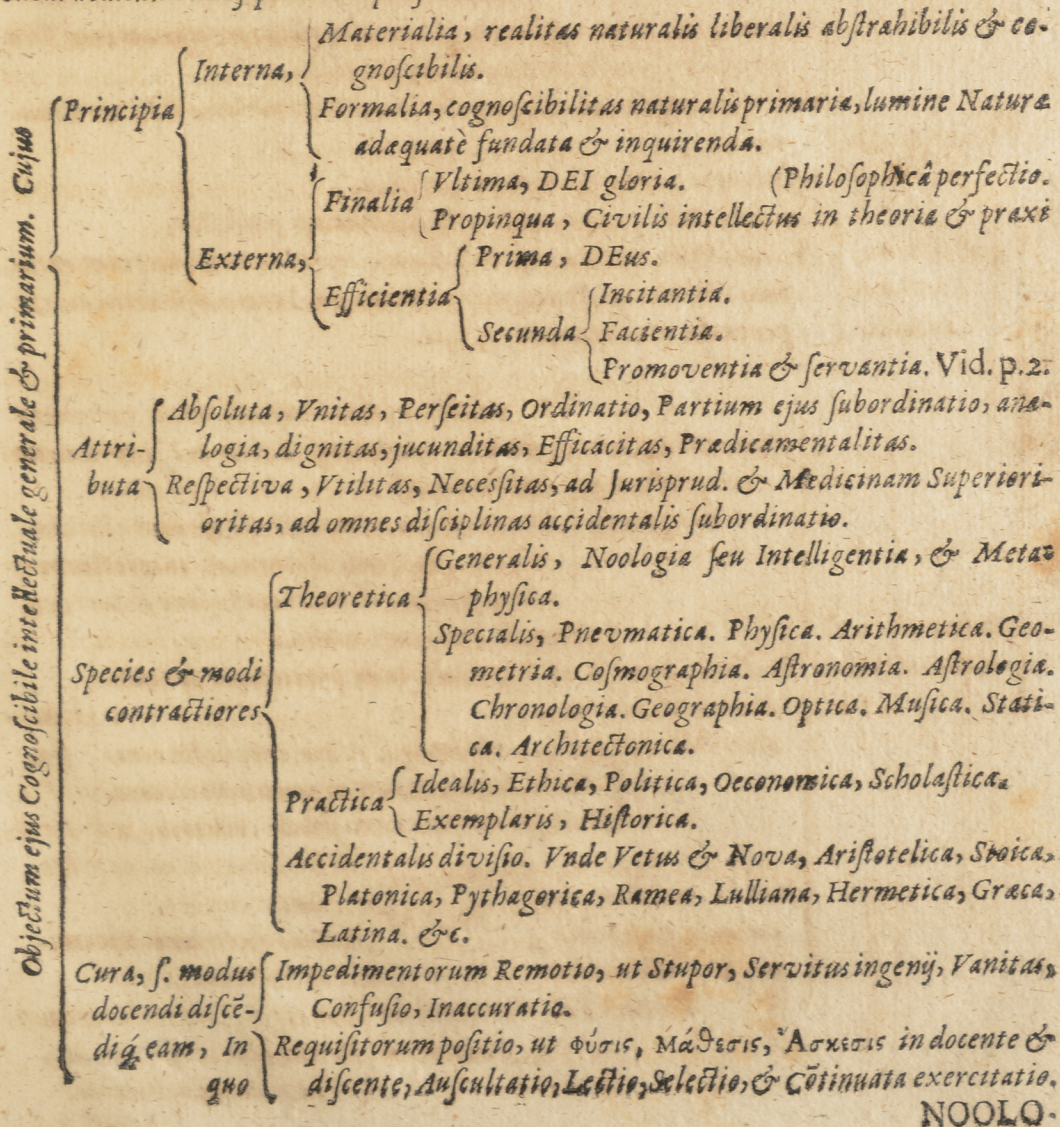 Objectum ejus Cognoſcibile intellectuale generale & primarium. Cujus
Principia
Interna,
Materialia, realitas naturalis liberalis abſtrahibilis & co-
gnoſcibilis.
Formalia, cognoſcibilitas naturalis primaria, lumine Naturæ
adæquatè fundata & inquirenda.
Externa,
Finalia
Vltima, DEI gloria. (Philoſophicâ perfectio.
Propinqua, Civilis intellectus in theoria & praxi
Efficientia
Prima, DEus.
Secunda
Incitantia.
Facientia.
Promoventia & ſervantia. Vid. p. 2.
Attri-
buta
Abſoluta, Vnitas, Perſeitas, Ordinatio, Partium ejus ſubordinatio, ana-
logia, dignitas, jucunditas, Efficacitas, Prædicamentalitas.
Reſpectiva, Vtilitas, Neceſsitas, ad Jurisprud. & Medicinam Superiori-
oritas, ad omnes diſciplinas accidentalis ſubordinatio.
Species & modi
contractiores
Theoretica
Generalis, Noologia ſeu Intelligentia, & Meta-
phyſica.
Specialis, Pnevmatica. Phyſica. Arithmetica. Geo-
metria. Coſmographia. Aſtronomia. Aſtrologia.
Chronologia. Geographia. Optica. Muſica. Stati-
ca. Architectonica.
Practica
Idealis, Ethica, Politica, Oeconomica, Scholaſtica.
Exemplaris, Hiſtorica.
Accidentalis diviſio. Vnde Vetus & Nova, Ariſtotelica, Stoica,
Platonica, Pythagorica, Ramea, Lulliana, Hermetica, Græca,
Latina. &c.
Cura, ſ. modus
docendi diſcē-
diq́; eam, In
quo
Impedimentorum Remotio, ut Stupor, Servitus ingenij, Vanitas,
Confuſio, Inaccuratio.
Requiſitorum poſitio, ut Φύσις, Μάθεσις, Ἄσκεσις in docente &
diſcente, Auſcultatio, Lectio, Selectio, & Cōtinuata exercitatio.
NOOLO-